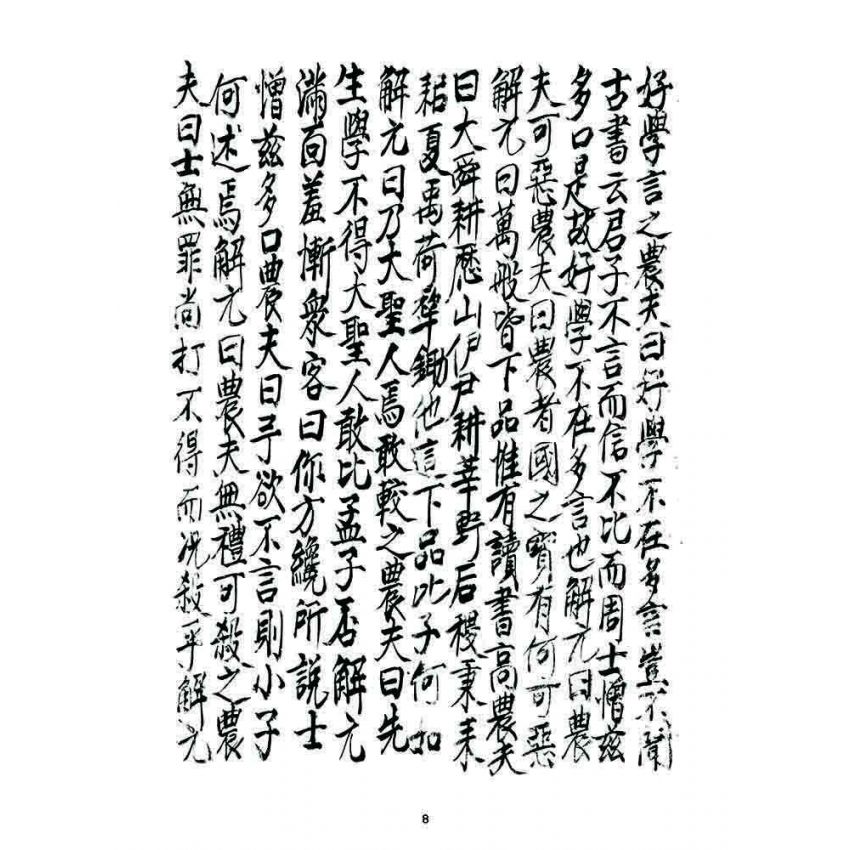 好學言之農夫曰好學不在多言豈不聞
古書云君子不言而信不比而周士憎茲
多口是故好學不在多言也解元曰農
夫可惡農夫曰農者國之寶有何可惡
解元曰萬般皆下品惟有讀書高農夫
曰大舜耕歷山伊尹耕莘野后稷秉耒
耜夏禹荷犂鋤他這下品比子何如
解元曰乃大聖人焉敢較之農夫曰先
生學不得大聖人敢比孟子否解元
滿面羞慚眾客曰你方纔所說士
憎茲多口農夫曰予欲不言則小子
何述焉解元曰農夫無禮可殺之農
夫曰士無罪尚打不得而况殺乎解元
8